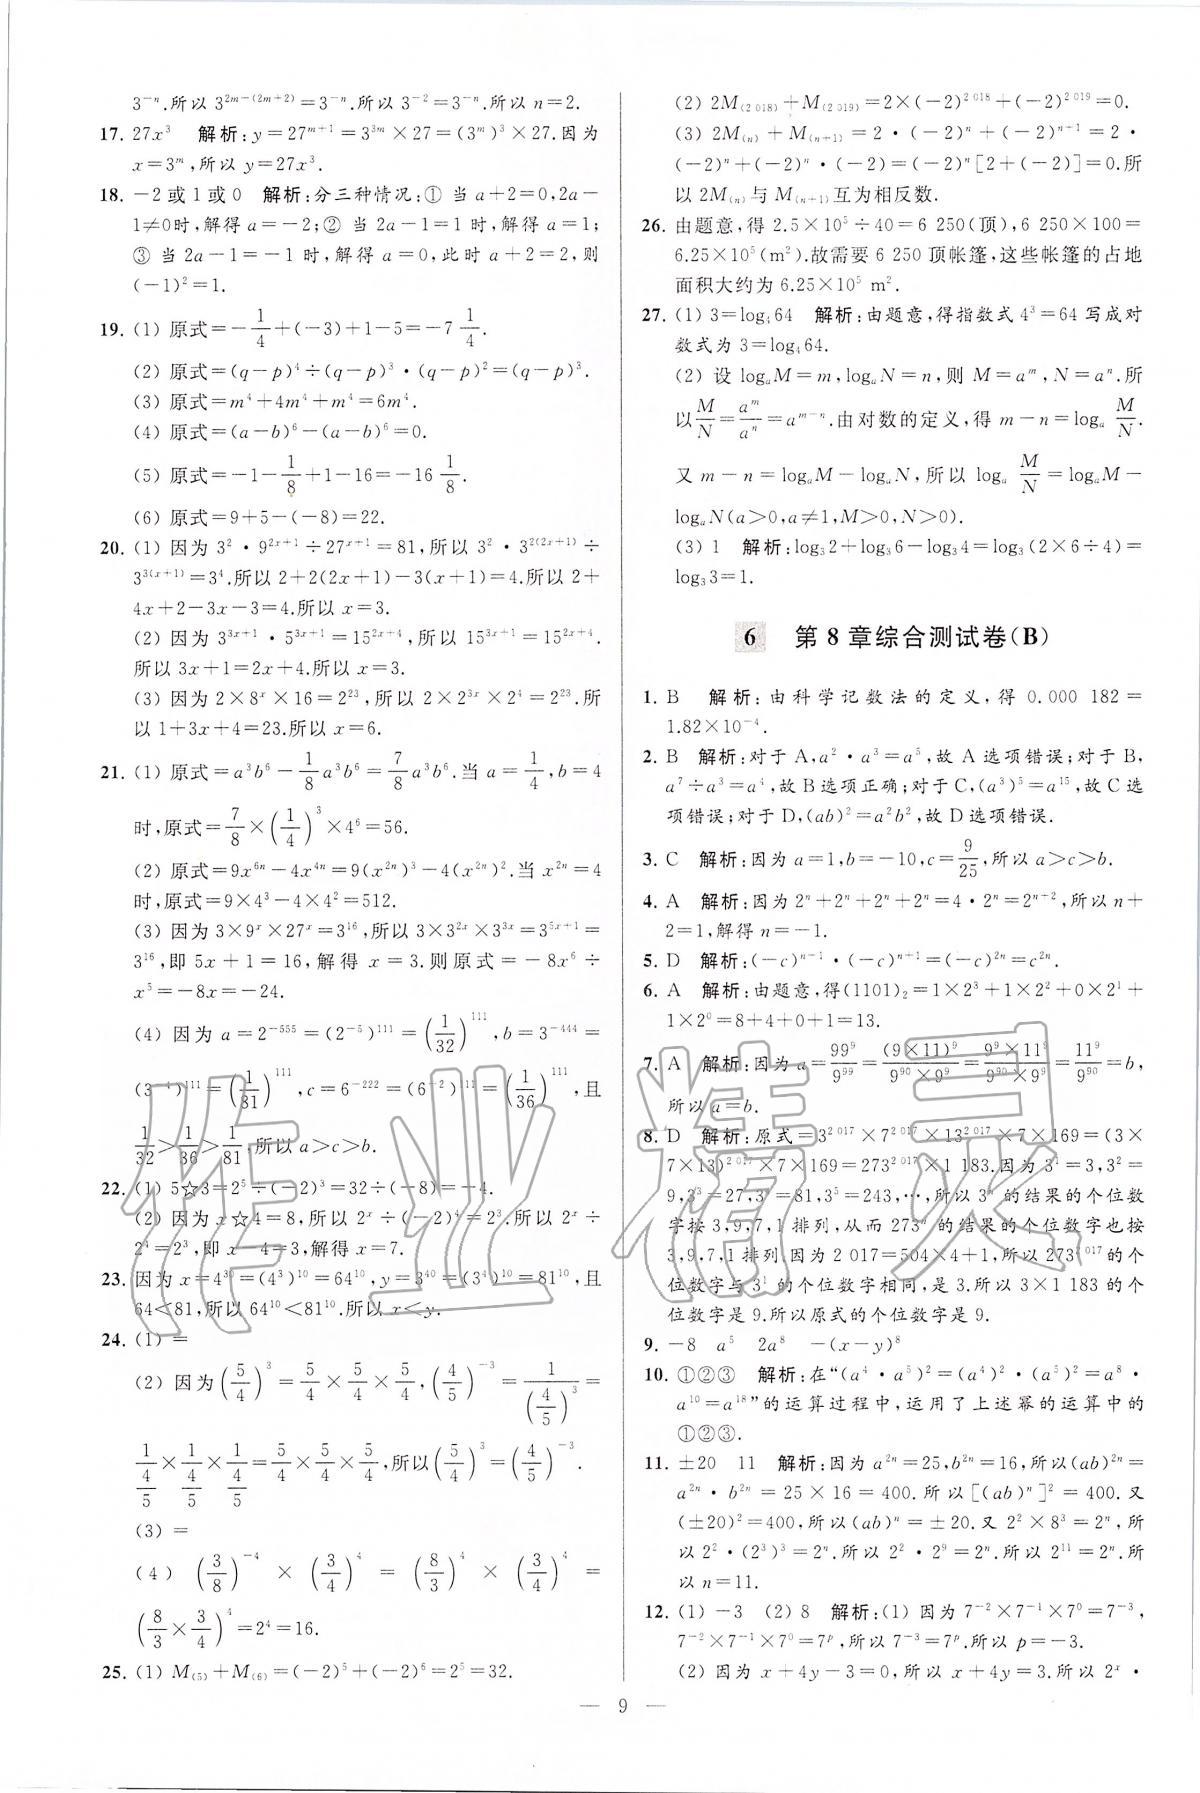 3⁻ⁿ.所以 3²ᵐ⁻⁽²ᵐ⁺²⁾=3⁻ⁿ.所以 3⁻²=3⁻ⁿ,所以 n=2.
17. 27x³ 解析:y=27ᵐ⁺¹=3³ᵐ×27=(3ᵐ)³×27.因为
x=3ᵐ,所以 y=27x³.
18. -2或1或0 解析:分三种情况:① 当 a+2=0,2a-
1≠0时,解得 a=-2;② 当 2a-1=1 时,解得 a=1;
③ 当 2a-1=-1 时,解得 a=0,此时 a+2=2,则
(-1)²=1.
19. (1) 原式=-1/4+(-3)+1-5=-7 1/4.
(2) 原式=(q-p)⁴÷(q-p)³·(q-p)²=(q-p)³.
(3) 原式=m⁴+4m⁴+m⁴=6m⁴.
(4) 原式=(a-b)⁶-(a-b)⁶=0.
(5) 原式=-1-1/8+1-16=-16 1/8.
(6) 原式=9+5-(-8)=22.
20. (1) 因为 3²·9²ˣ⁺¹÷27ˣ⁺¹=81,所以 3²·3²⁽²ˣ⁺¹⁾÷
3³⁽ˣ⁺¹⁾=3⁴.所以 2+2(2x+1)-3(x+1)=4.所以 2+
4x+2-3x-3=4.所以 x=3.
(2) 因为 3³ˣ⁺¹·5³ˣ⁺¹=15²ˣ⁺⁴,所以 15³ˣ⁺¹=15²ˣ⁺⁴.
所以 3x+1=2x+4.所以 x=3.
(3) 因为 2×8ˣ×16=2²³,所以 2×2³ˣ×2⁴=2²³.所
以 1+3x+4=23.所以 x=6.
21. (1) 原式=a³b⁶-1/8a³b⁶=7/8a³b⁶.当 a=1/4,b=4
时,原式=7/8×(1/4)³×4⁶=56.
(2) 原式=9x⁶ⁿ-4x⁴ⁿ=9(x²ⁿ)³-4(x²ⁿ)².当 x²ⁿ=4
时,原式=9×4³-4×4²=512.
(3) 因为 3×9ˣ×27ˣ=3¹⁶,所以 3×3²ˣ×3³ˣ=3⁵ˣ⁺¹=
3¹⁶,即 5x+1=16,解得 x=3.则原式=-8x⁶÷
x⁵=-8x=-24.
(4) 因为 a=2⁻⁵⁵⁵=(2⁻⁵)¹¹¹=(1/32)¹¹¹,b=3⁻⁴⁴⁴=
(3⁻⁴)¹¹¹=(1/81)¹¹¹,c=6⁻²²²=(6⁻²)¹¹¹=(1/36)¹¹¹,且
1/32>1/36>1/81,所以 a>c>b.
22. (1) 5☆3=2⁵÷(-2)³=32÷(-8)=-4.
(2) 因为 x☆4=8,所以 2ˣ÷(-2)⁴=2³.所以 2ˣ÷
2⁴=2³,即 x-4=3,解得 x=7.
23. 因为 x=4³⁰=(4³)¹⁰=64¹⁰,y=3⁴⁰=(3⁴)¹⁰=81¹⁰,且
64<81,所以 64¹⁰<81¹⁰.所以 x<y.
24. (1) =
(2) 因为(5/4)³=5/4×5/4×5/4,(4/5)⁻³=1/(4/5)³=
1/(4/5)×1/(4/5)×1/(4/5)=5/4×5/4×5/4,所以(5/4)³=(4/5)⁻³.
(3) =
(4) (3/8)⁻⁴×(3/4)⁴=(8/3)⁴×(3/4)⁴=
(8/3×3/4)⁴=2⁴=16.
25. (1) M₍₅₎+M₍₆₎=(-2)⁵+(-2)⁶=2⁵=32.
(2) 2M₍₂ ₀₁₈₎+M₍₂ ₀₁₉₎=2×(-2)² ⁰¹⁸+(-2)² ⁰¹⁹=0.
(3) 2M₍ₙ₎+M₍ₙ₊₁₎=2·(-2)ⁿ+(-2)ⁿ⁺¹=2·
(-2)ⁿ+(-2)ⁿ·(-2)=(-2)ⁿ[2+(-2)]=0.所
以 2M₍ₙ₎与 M₍ₙ₊₁₎互为相反数.
26. 由题意,得 2.5×10⁵÷40=6 250(顶),6 250×100=
6.25×10⁵(m²).故需要 6 250 顶帐篷,这些帐篷的占地
面积大约为 6.25×10⁵ m².
27. (1) 3=log₄64 解析:由题意,得指数式 4³=64 写成对
数式为 3=log₄64.
(2) 设 logₐM=m,logₐN=n,则 M=aᵐ,N=aⁿ.所
以M/N=aᵐ/aⁿ=aᵐ⁻ⁿ.由对数的定义,得 m-n=logₐ M/N.
又 m-n=logₐM-logₐN,所以 logₐ M/N=logₐM-
logₐN(a>0,a≠1,M>0,N>0).
(3) 1 解析:log₃2+log₃6-log₃4=log₃(2×6÷4)=
log₃3=1.
6 第 8 章综合测试卷(B)
1. B 解析:由科学记数法的定义,得 0.000 182=
1.82×10⁻⁴.
2. B 解析:对于 A,a²·a³=a⁵,故 A 选项错误;对于 B,
a⁷÷a³=a⁴,故 B 选项正确;对于 C,(a³)⁵=a¹⁵,故 C 选
项错误;对于 D,(ab)²=a²b²,故 D 选项错误.
3. C 解析:因为 a=1,b=-10,c=9/25,所以 a>c>b.
4. A 解析:因为 2ⁿ+2ⁿ+2ⁿ+2ⁿ=4·2ⁿ=2ⁿ⁺²,所以 n+
2=1,解得 n=-1.
5. D 解析:(-c)ⁿ⁻¹·(-c)ⁿ⁺¹=(-c)²ⁿ=c²ⁿ.
6. A 解析:由题意,得(1101)₂=1×2³+1×2²+0×2¹+
1×2⁰=8+4+0+1=13.
7. A 解析:因为 a=99⁹/9⁹⁹=(9×11)⁹/(9⁹⁰×9⁹)=(9⁹×11⁹)/(9⁹⁰×9⁹)=11⁹/9⁹⁰=b,
所以 a=b.
8. D 解析:原式=3² ⁰¹⁷×7² ⁰¹⁷×13² ⁰¹⁷×7×169=(3×
7×13)² ⁰¹⁷×7×169=273² ⁰¹⁷×1 183.因为 3¹=3,3²=
9,3³=27,3⁴=81,3⁵=243,…,所以 3ⁿ 的结果的个位数
字按 3,9,7,1 排列,从而 273ⁿ 的结果的个位数字也按
3,9,7,1 排列.因为 2 017=504×4+1,所以 273² ⁰¹⁷的个
位数字与 3¹ 的个位数字相同,是 3.所以 3×1 183 的个
位数字是 9.所以原式的个位数字是 9.
9. -8 a⁵ 2a⁸ -(x-y)⁸
10. ①②③ 解析:在“(a⁴·a⁵)²=(a⁴)²·(a⁵)²=a⁸·
a¹⁰=a¹⁸”的运算过程中,运用了上述幂的运算中的
①②③.
11. ±20 11 解析:因为 a²ⁿ=25,b²ⁿ=16,所以(ab)²ⁿ=
a²ⁿ·b²ⁿ=25×16=400.所以[(ab)ⁿ]²=400.又
(±20)²=400,所以(ab)ⁿ=±20.又 2²×8³=2ⁿ,所
以 2²·(2³)³=2ⁿ.所以 2²·2⁹=2ⁿ.所以 2¹¹=2ⁿ.所
以 n=11.
12. (1) -3 (2) 8 解析:(1) 因为 7⁻²×7⁻¹×7⁰=7⁻³,
7⁻²×7⁻¹×7⁰=7ᵖ,所以 7⁻³=7ᵖ.所以 p=-3.
(2) 因为 x+4y-3=0,所以 x+4y=3.所以 2ˣ·
— 9 —
作业精灵